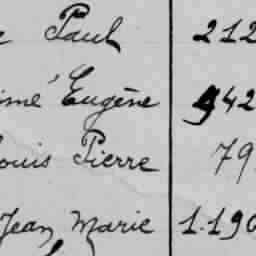 e Paul 212
imé Eugène 942
ouis Pierre 79
Jean Marie 1.190